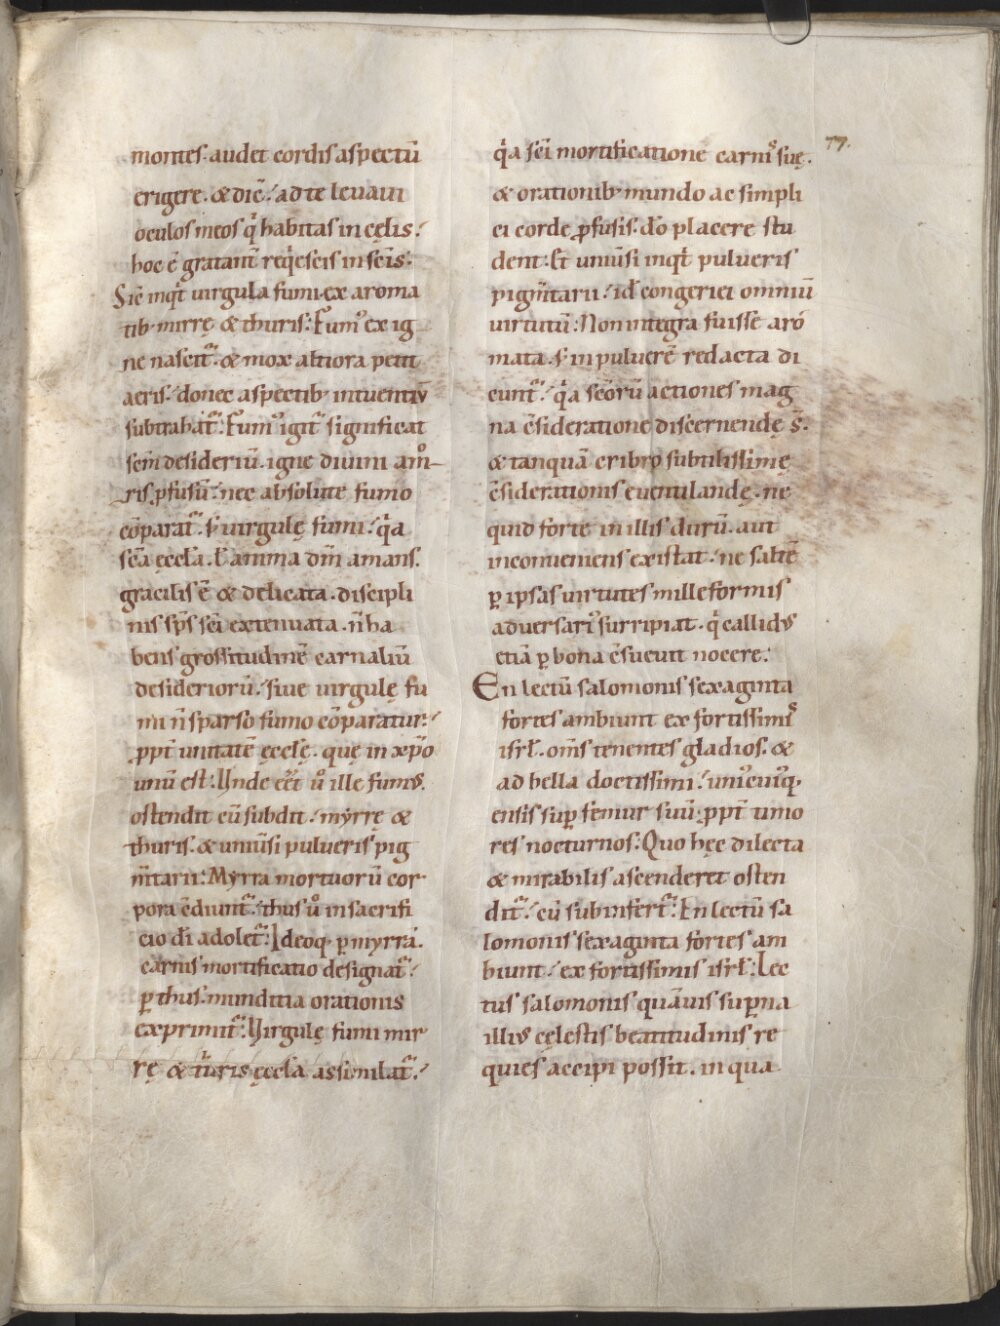 montes· audet cordis aspectū
erigere· & dic̄· ad te levavi
oculos meos q̇ habitas in cęlis·
hoc ē gratant̄ reqͥescis in sc̄is·
Sic̄ inqͥt virgula fumi ex aroma
tib· mirrę & thuris· Fumꝰ ex ig
ne nascit̄· & mox altiora petit
aeris· donec aspectib· intuentiū
subtrahat̄· Fumꝰ igit̄ significat
sc̄m desideriū· igne divini amo
ris ꝑfusū· nec absolute fumo
cōparat̄· s; virgulę fumi· qͥa
sc̄a ęccl̄a· ł anima dn̄m amans·
gracilis ē & delicata· discipli
nis sp̄s sc̄i extenuata· n̄ ha
bens grossitudinē carnaliū
desideriorū· sive virgulę fu
mi n̄ sparso fumo cōparatur·
ꝓpt̄ unitatē ęccl̄ę· quę in xp̄o
unū est· Unde ēet uͦ ille fumꝰ·
ostendit cū subdit· myrrę &
thuris· & univ̄si pulveris pig
m̄tarii· Myrra mortuorū cor
pora c̄diunt̄· thus uͦ in sacrifi
cio dī adolet̄· Ideoq· ꝑ myrrā·
carnis mortificatio designat̄·
ꝑ thus· munditia orationis
exprimit̄· Virgulę fumi mir
rę & turis ęccl̄a assimilat̄·
77·
qͥa sc̄i mortificatione carnis suę·
& orationib· mundo ac simpli
ci corde ꝓfusis· dō placere stu
dent· Et univ̄si inqͥt pulveris
pigm̄tarii· id ē congeriei omniū
virtutū· Non integra fuisse aro
mata· s; in pulverē redacta di
cunt̄· qͥa sc̄orū actiones mag
na c̄sideratione discernendę s̄·
& tanquā cribro subtilissimę
c̄siderationis eventilandę· ne
quid forte in illis durū· aut
inconveniens existat· ne saltē
ꝑ ipsas virtutes milleformis
adversariꝰ surripiat· qͥ callidꝰ
etiā ꝑ bona c̄suevit nocere·
En lectū salomonis sexaginta
fortes ambiunt ex fortissimis
isrł· om̄s tenentes gladios· &
ad bella doctissimi· uniꝰcuiꝰq·
ensis suꝑ femur suū· ꝓpt̄ timo
res nocturnos· Quo hęc dilecta
& mirabilis ascenderet osten
dit̄· cū subinfert̄· En lectū sa
lomonis sexaginta fortes am
biunt· ex fortissimis isrł· Lec
tus salomonis quāvis suꝑna
illiꝰ cęlestis beatitudinis re
quies accipi possit· in qua